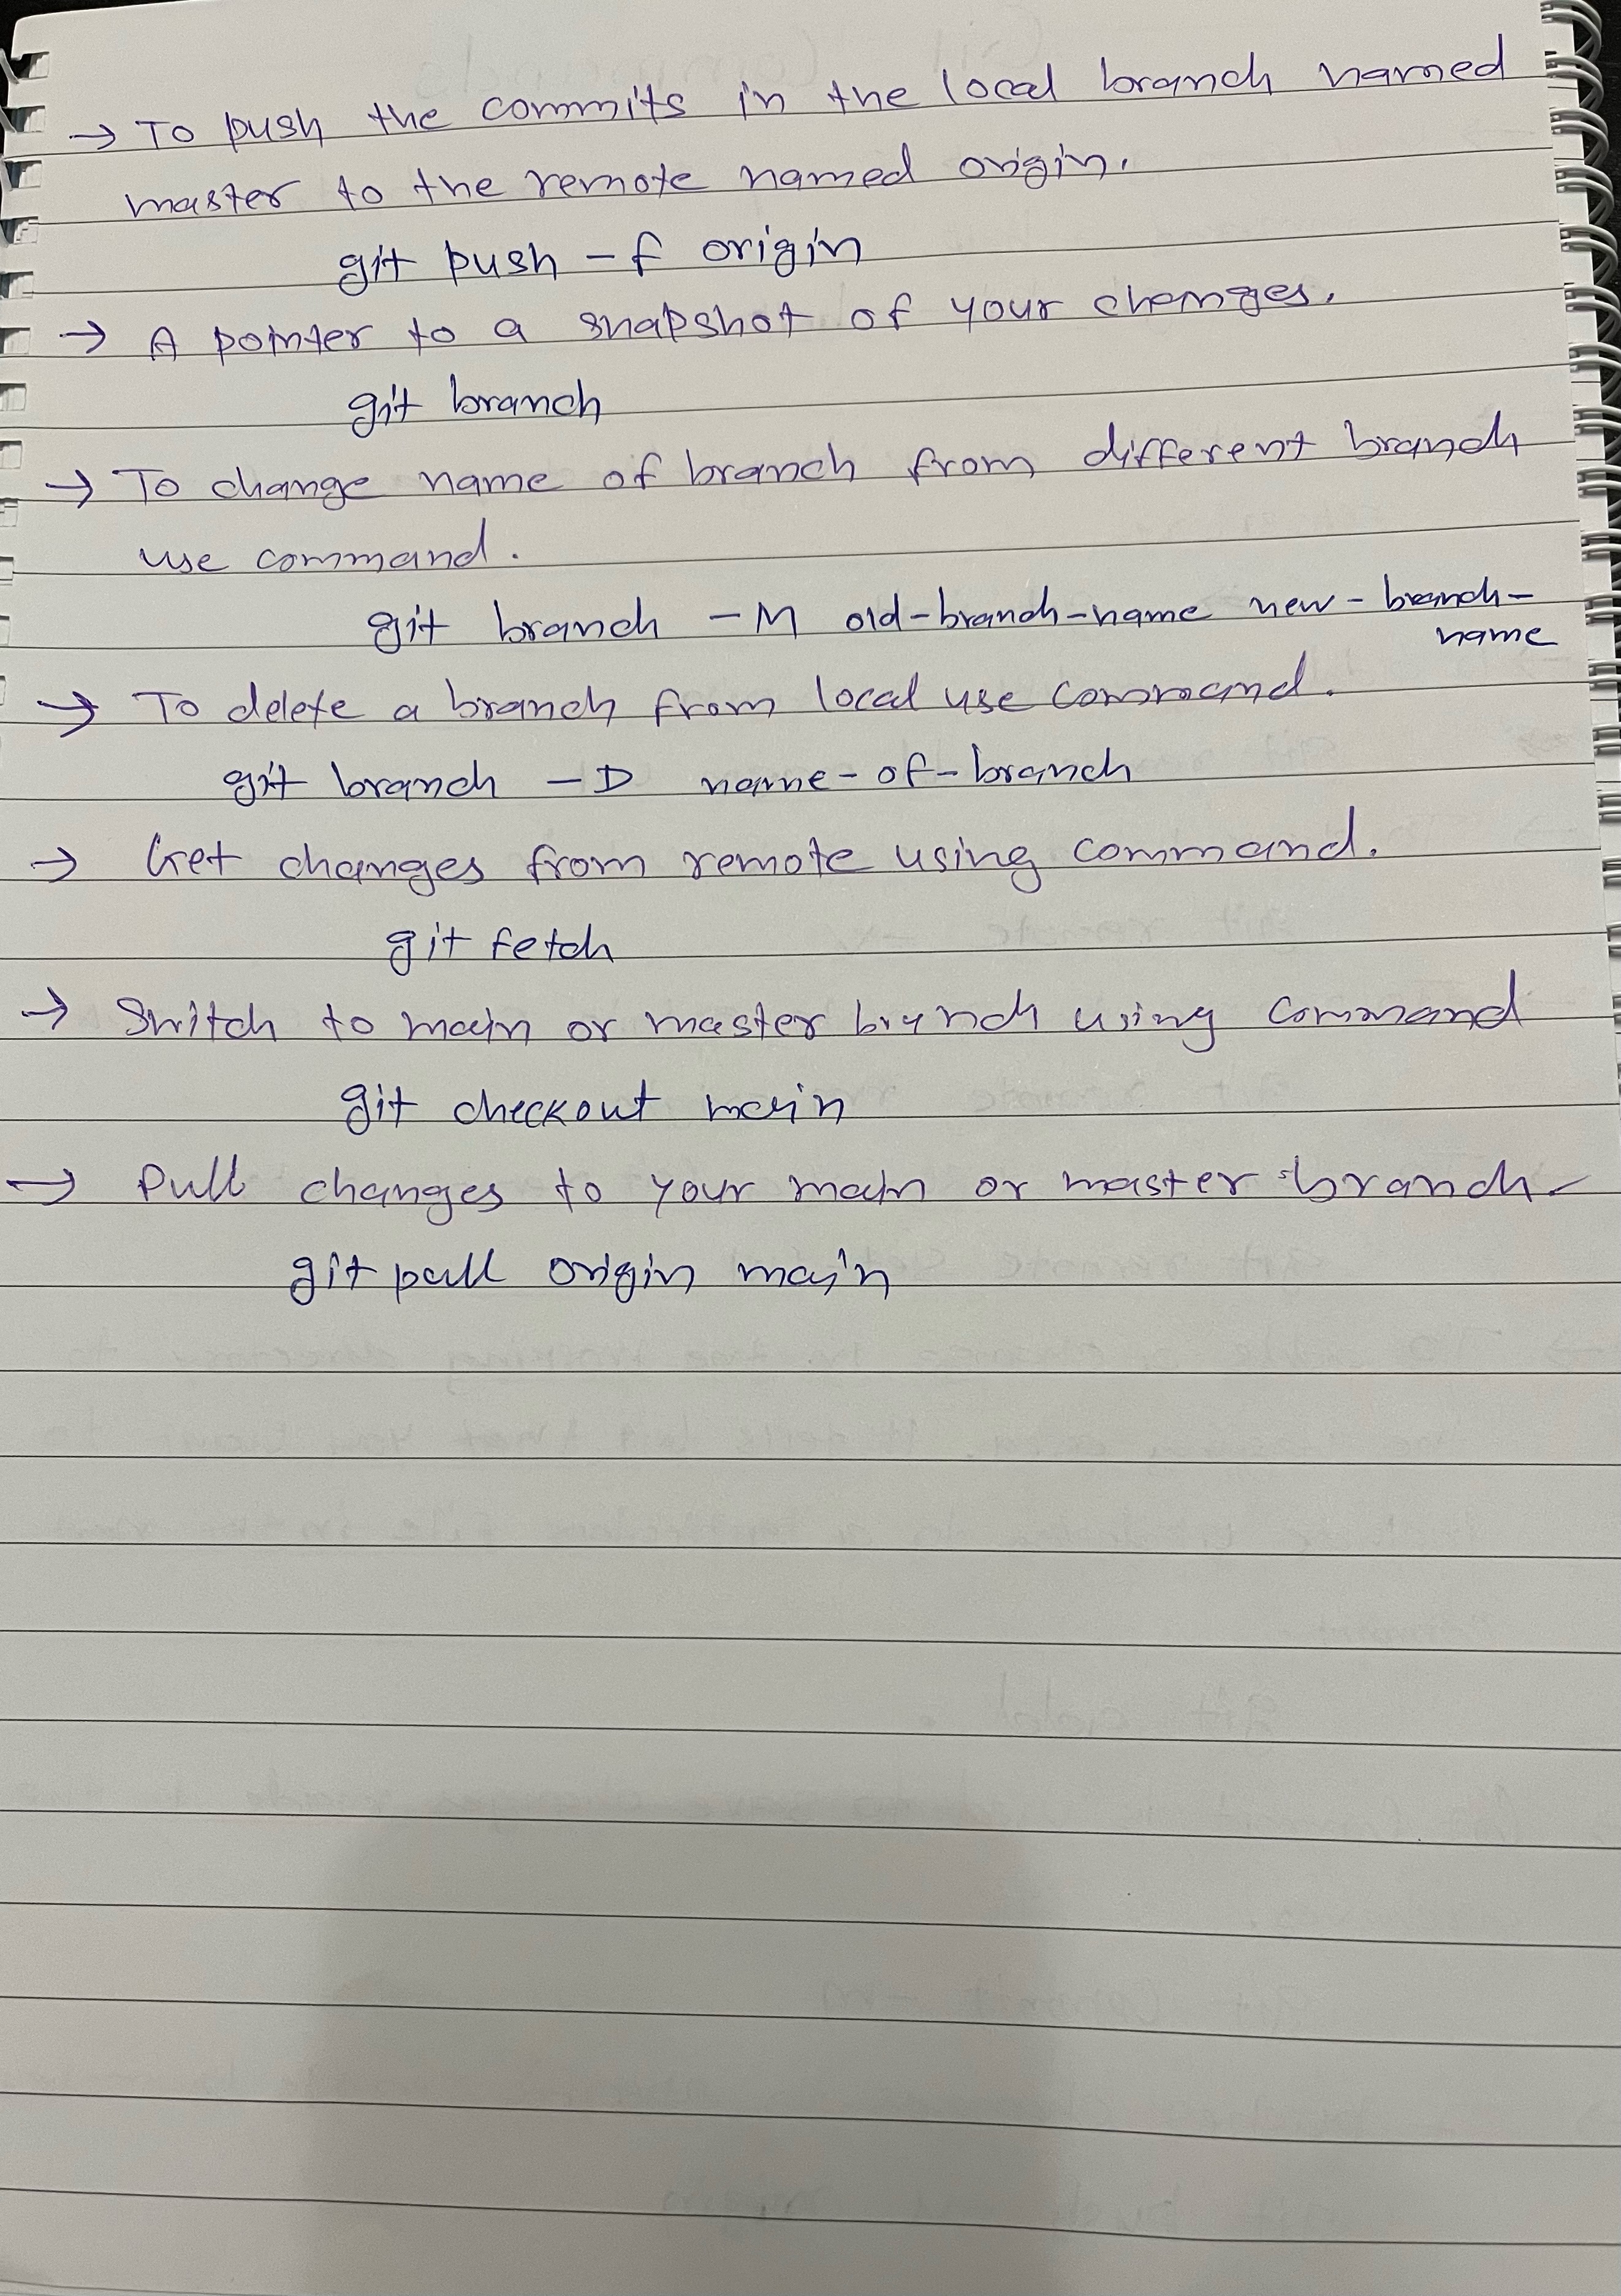 → To push the commits in the local branch named
master to the remote named origin.
git push -f origin
→ A pointer to a snapshot of your changes.
git branch
→ To change name of branch from different branch
use command.
git branch -M old-branch-name new-branch-
name
→ To delete a branch from local use command.
git branch -D name-of-branch
→ Get changes from remote using command.
git fetch
→ Switch to main or master branch using command
git checkout main
→ Pull changes to your main or master branch-
git pull origin main